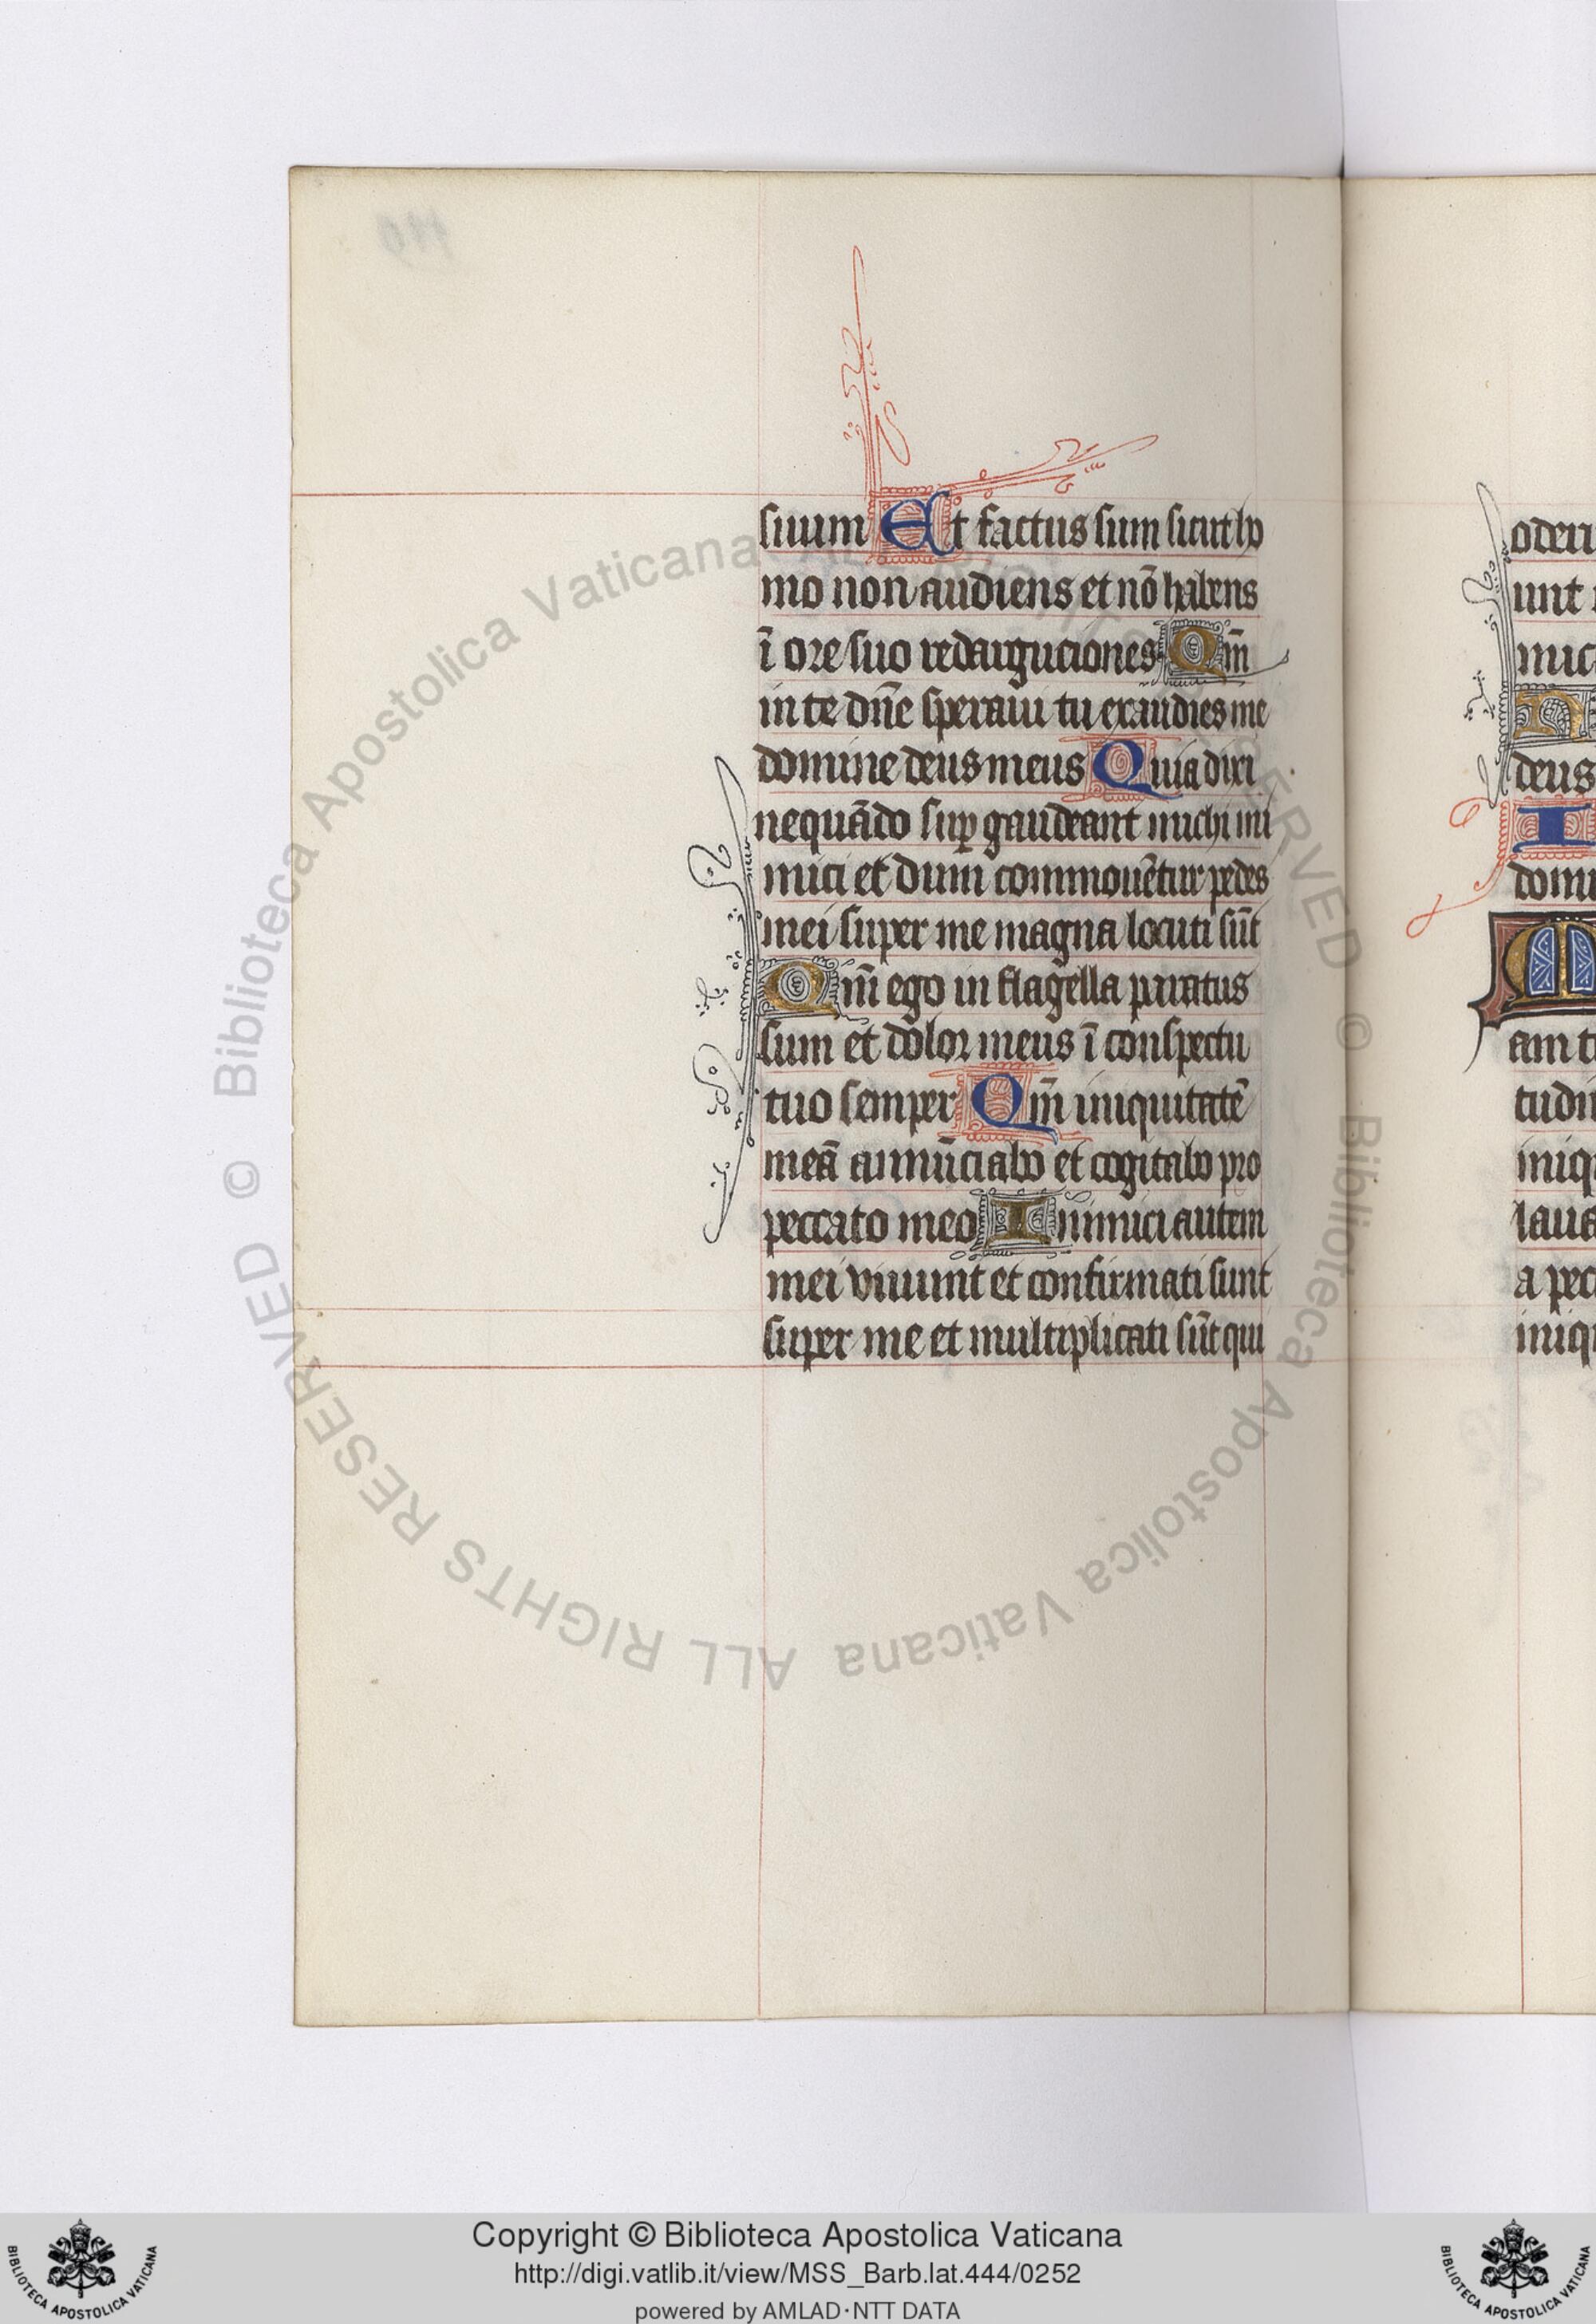 suum Et factus sum sicut ho
mo non audiens et nō habens
ī ore suo redarguciones Qm̄
in te dn̄e speraui tu exaudies me
domine deus meus Quia dixi
nequādo suꝑ gaudeant michi ini
mici et dum commouētur pedes
mei super me magna locuti sūt
Qm̄ ego in flagella paratus
sum et dolor meus ī conspectu
tuo semper Qm̄ iniquitatē
meā annūciabo et cogitabo pro
peccato meo Inimici autem
mei viuunt et confirmati sunt
super me et multiplicati sūt qui
oderu
unt
deus
I
domi
am t
tudi
iniq
laua
a pec
iniq
© Biblioteca Apostolica Vaticana ALL RIGHTS RESERVED
© Biblioteca Apostolica Vaticana ALL RIGHTS RESERVED
Copyright © Biblioteca Apostolica Vaticana
http://digi.vatlib.it/view/MSS_Barb.lat.444/0252
powered by AMLAD·NTT DATA
BIBLIOTECA APOSTOLICA VATICANA
BIBLIOTECA APOSTOLICA VATICANA